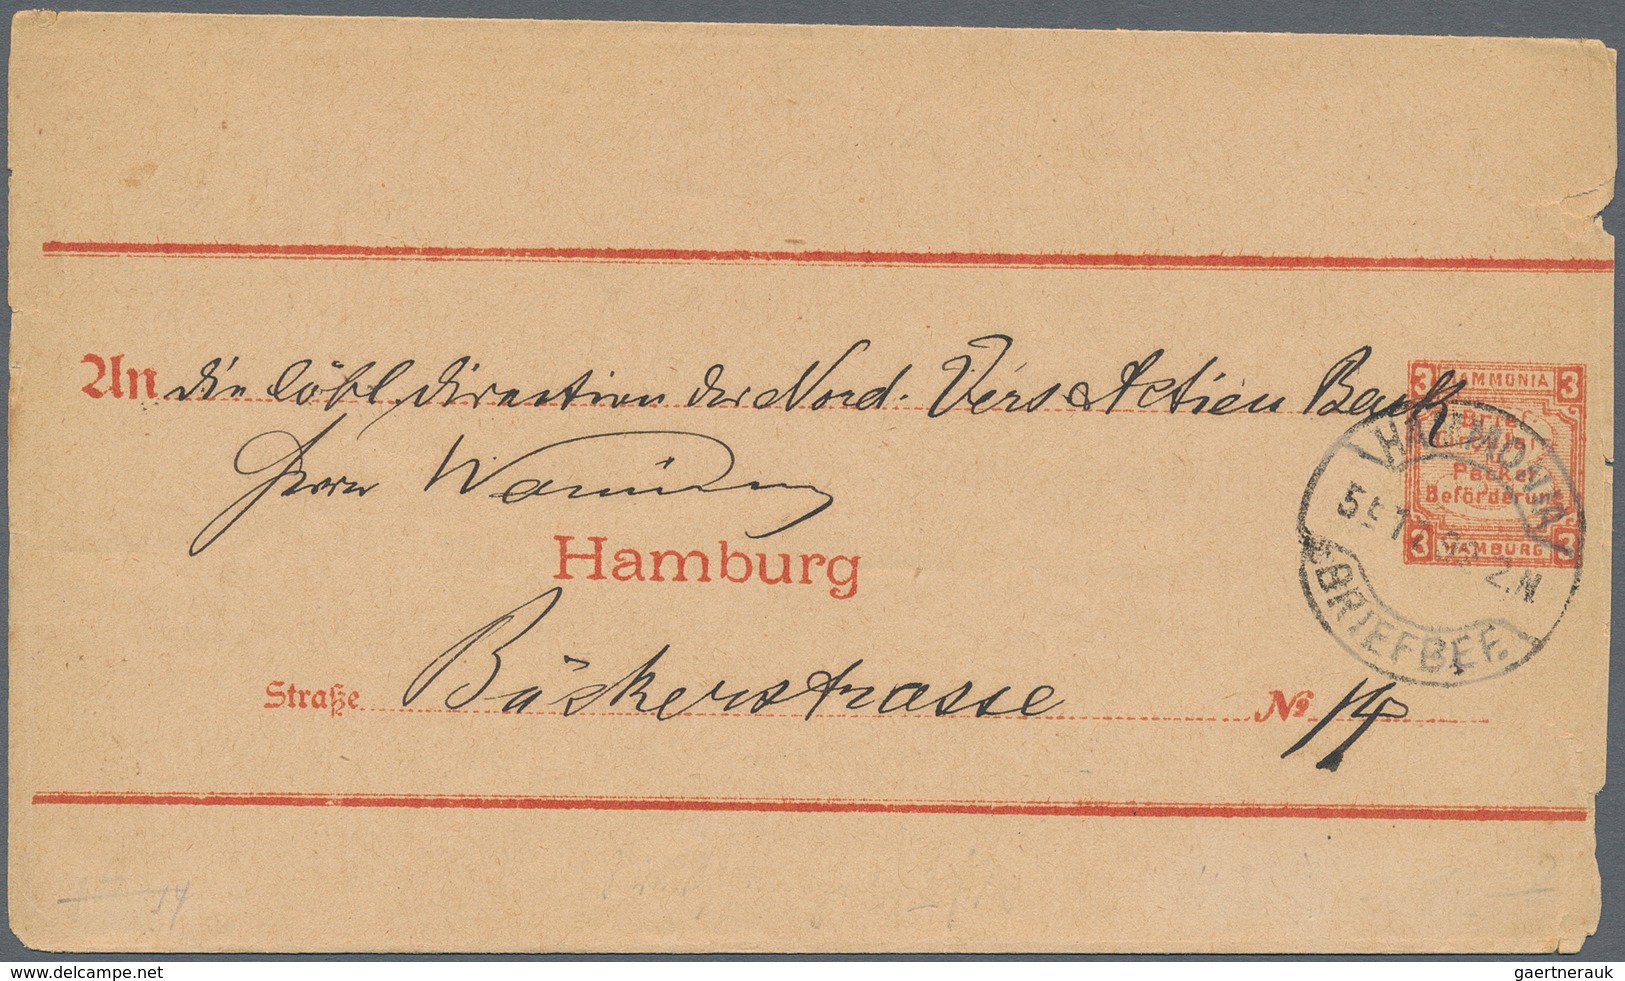 An die löbl. Direction der Nord. Vers Actien Bank
Herrn
Hamburg
Straße Bäckerstrasse № 14
3 HAMMONIA 3
Brief
Circular
Packet
Beförderung
3 HAMBURG 3
HAMMONIA
5 12 2.N
BRIEFBEF.
www.delcampe.net
gaertnerauk